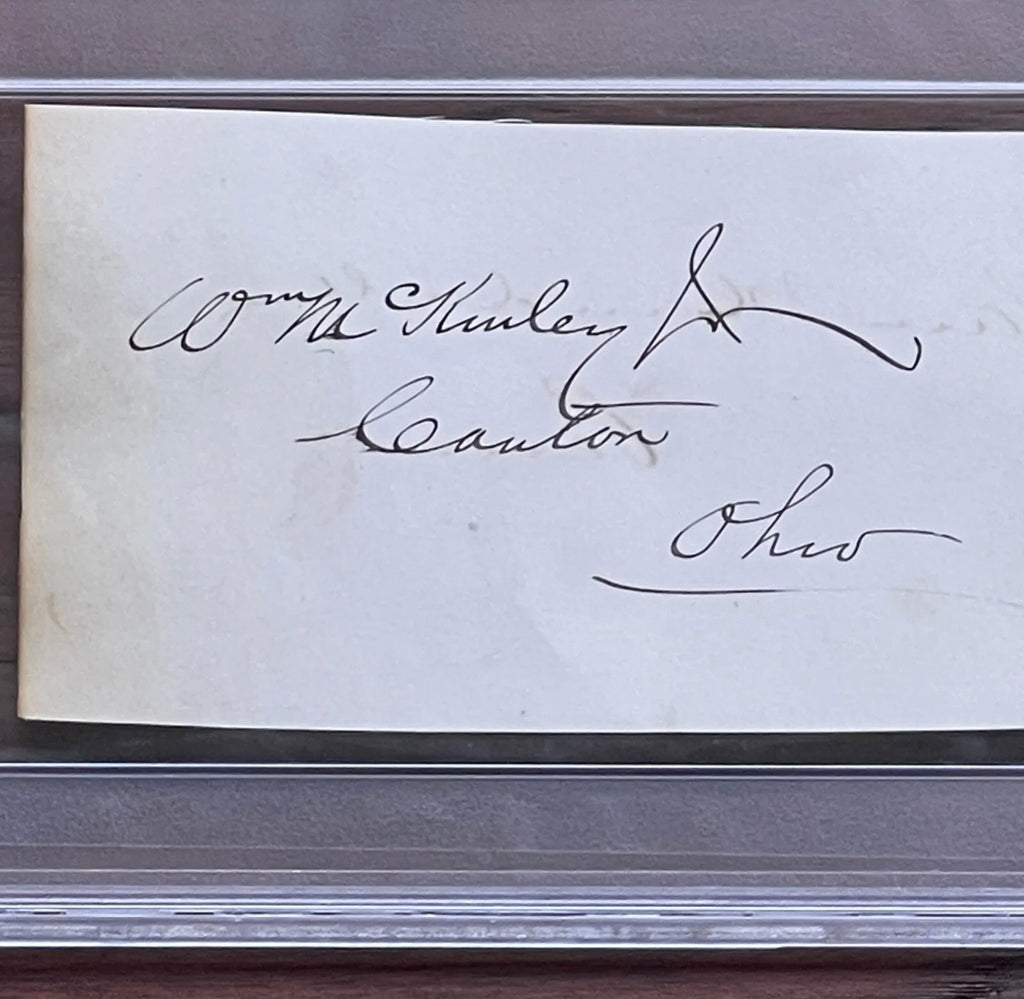 Wm McKinley Jr
Canton
Ohio